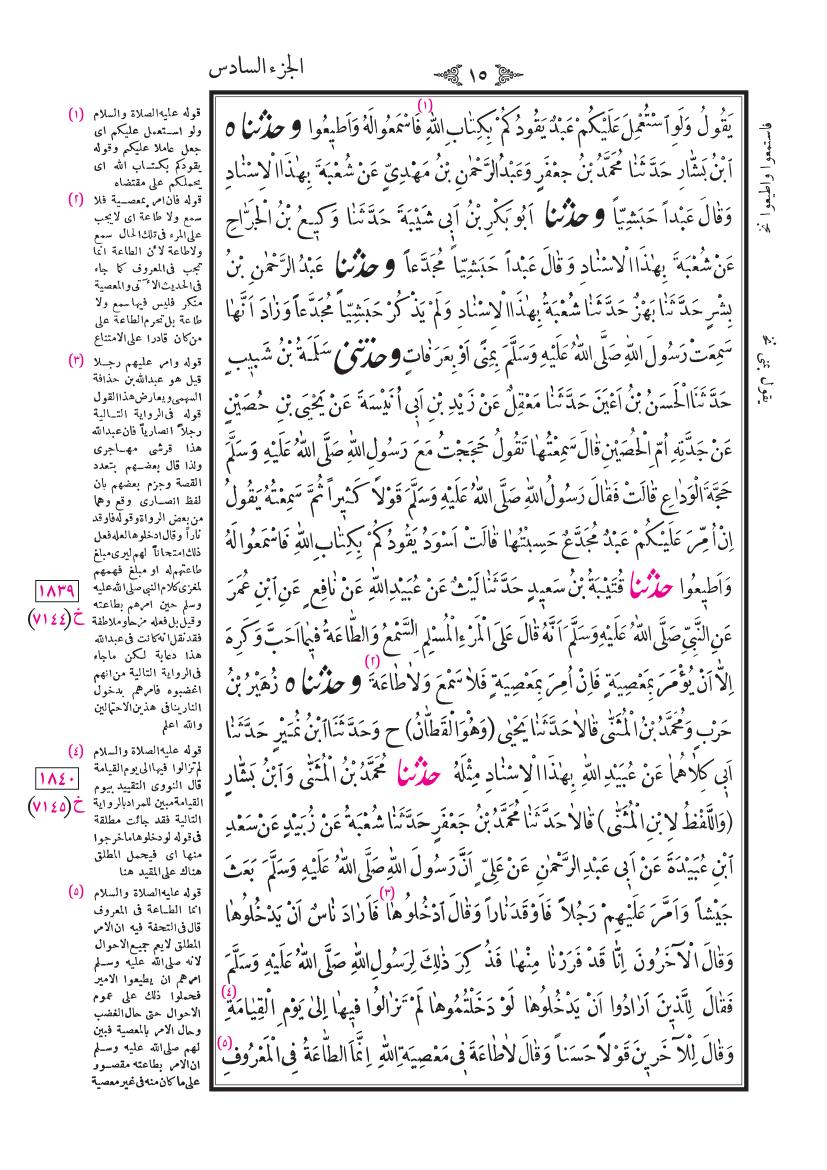 الجزء السادس
١٥
(١)
يَقُولُ وَلَوِ اسْتُعْمِلَ عَلَيْكُمْ عَبْدٌ يَقُودُكُمْ بِكِتَابِ اللّٰهِ فَاسْمَعُوا لَهُ وَاَطِيعُوا وحدثناه
ابْنُ بَشَّارٍ حَدَّثَنَا مُحَمَّدُ بْنُ جَعْفَرٍ وَعَبْدُ الرَّحْمٰنِ بْنُ مَهْدِيٍّ عَنْ شُعْبَةَ بِهٰذَا الْاِسْنَادِ
وَقَالَ عَبْداً حَبَشِيّاً وحدثنا اَبُو بَكْرِ بْنُ اَبِى شَيْبَةَ حَدَّثَنَا وَكِيعُ بْنُ الْجَرَّاحِ
عَنْ شُعْبَةَ بِهٰذَا الْاِسْنَادِ وَقَالَ عَبْداً حَبَشِيّاً مُجَدَّعاً وحدثنا عَبْدُ الرَّحْمٰنِ بْنُ
بِشْرٍ حَدَّثَنَا بَهْزٌ حَدَّثَنَا شُعْبَةُ بِهٰذَا الْاِسْنَادِ وَلَمْ يَذْكُرْ حَبَشِيّاً مُجَدَّعاً وَزَادَ اَنَّهَا
سَمِعَتْ رَسُولَ اللّٰهِ صَلَّى اللّٰهُ عَلَيْهِ وَسَلَّمَ بِمِنًى اَوْ بِعَرَفَاتٍ وحدثنى سَلَمَةُ بْنُ شَبِيبٍ
حَدَّثَنَا الْحَسَنُ بْنُ اَعْيَنَ حَدَّثَنَا مَعْقِلٌ عَنْ زَيْدِ بْنِ اَبِى اُنَيْسَةَ عَنْ يَحْيَى بْنِ حُصَيْنٍ
عَنْ جَدَّتِهِ اُمِّ الْحُصَيْنِ قَالَ سَمِعْتُهَا تَقُولُ حَجَجْتُ مَعَ رَسُولِ اللّٰهِ صَلَّى اللّٰهُ عَلَيْهِ وَسَلَّمَ
حَجَّةَ الْوَدَاعِ قَالَتْ فَقَالَ رَسُولُ اللّٰهِ صَلَّى اللّٰهُ عَلَيْهِ وَسَلَّمَ قَوْلاً كَثِيراً ثُمَّ سَمِعْتُهُ يَقُولُ
اِنْ اُمِّرَ عَلَيْكُمْ عَبْدٌ مُجَدَّعٌ حَسِبْتُهَا قَالَتْ اَسْوَدُ يَقُودُكُمْ بِكِتَابِ اللّٰهِ فَاسْمَعُوا لَهُ
وَاَطِيعُوا حدثنا قُتَيْبَةُ بْنُ سَعِيدٍ حَدَّثَنَا لَيْثٌ عَنْ عُبَيْدِ اللّٰهِ عَنْ نَافِعٍ عَنِ ابْنِ عُمَرَ
عَنِ النَّبِيِّ صَلَّى اللّٰهُ عَلَيْهِ وَسَلَّمَ اَنَّهُ قَالَ عَلَى الْمَرْءِ الْمُسْلِمِ السَّمْعُ وَالطَّاعَةُ فِيمَا اَحَبَّ وَكَرِهَ
اِلاَّ اَنْ يُؤْمَرَ بِمَعْصِيَةٍ فَاِنْ اُمِرَ بِمَعْصِيَةٍ فَلاَ سَمْعَ وَلاَ طَاعَةَ (٢) وحدثناه زُهَيْرُ بْنُ
حَرْبٍ وَمُحَمَّدُ بْنُ الْمُثَنّٰى قَالاَ حَدَّثَنَا يَحْيٰى (وَهُوَ الْقَطَّانُ) ح وَحَدَّثَنَا ابْنُ نُمَيْرٍ حَدَّثَنَا
اَبِى كِلاَهُمَا عَنْ عُبَيْدِ اللّٰهِ بِهٰذَا الْاِسْنَادِ مِثْلَهُ حدثنا مُحَمَّدُ بْنُ الْمُثَنّٰى وَابْنُ بَشَّارٍ
(وَاللَّفْظُ لِابْنِ الْمُثَنّٰى) قَالاَ حَدَّثَنَا مُحَمَّدُ بْنُ جَعْفَرٍ حَدَّثَنَا شُعْبَةُ عَنْ زُبَيْدٍ عَنْ سَعْدِ
ابْنِ عُبَيْدَةَ عَنْ اَبِى عَبْدِ الرَّحْمٰنِ عَنْ عَلِيٍّ اَنَّ رَسُولَ اللّٰهِ صَلَّى اللّٰهُ عَلَيْهِ وَسَلَّمَ بَعَثَ
جَيْشاً وَاَمَّرَ عَلَيْهِمْ رَجُلاً فَاَوْقَدَ نَاراً وَقَالَ ادْخُلُوهَا (٣) فَاَرَادَ نَاسٌ اَنْ يَدْخُلُوهَا
وَقَالَ الْآخَرُونَ اِنَّا قَدْ فَرَرْنَا مِنْهَا فَذُكِرَ ذٰلِكَ لِرَسُولِ اللّٰهِ صَلَّى اللّٰهُ عَلَيْهِ وَسَلَّمَ
فَقَالَ لِلَّذِينَ اَرَادُوا اَنْ يَدْخُلُوهَا لَوْ دَخَلْتُمُوهَا لَمْ تَزَالُوا فِيهَا اِلٰى يَوْمِ الْقِيَامَةِ (٤)
وَقَالَ لِلْآخَرِينَ قَوْلاً حَسَناً وَقَالَ لاَ طَاعَةَ فِى مَعْصِيَةِ اللّٰهِ اِنَّمَا الطَّاعَةُ فِى الْمَعْرُوفِ (٥)
فاستمعوا واطيعوا نخ
يقول بمنى نخ
(١) قوله عليه الصلاة والسلام
ولو استعمل عليكم اى
جعل عاملا عليكم وقوله
يقودكم بكتاب الله اى
يحملكم على مقتضاه
(٢) قوله فان امر بمعصية فلا
سمع ولا طاعة اى لايجب
على المرء فى تلك الحال سمع
ولا طاعة لأن الطاعة انما
تجب فى المعروف كما جاء
فى الحديث الآتى والمعصية
منكر فليس فيها سمع ولا
طاعة بل تحرم الطاعة على
من كان قادرا على الامتناع
(٣) قوله وامر عليهم رجلا
قيل هو عبدالله بن حذافة
السهمى ويعارض هذا القول
قوله فى الرواية التالية
رجلاً انصارياً فان عبدالله
هذا قرشى مهاجرى
ولذا قال بعضهم بتعدد
القصة وجزم بعضهم بان
لفظ انصارى وقع وهما
من بعض الرواة وقوله فاوقد
ناراً وقال ادخلوها لعله فعل
ذلك امتحاناً لهم ليرى مبلغ
طاعتهم له او مبلغ فهمهم
لمغزى كلام النبى صلى الله عليه
وسلم حين امرهم بطاعته
وقيل بل فعله مزحا وملاطفة
فقد نقل انه كانت فى عبدالله
هذا دعابة لكن ماجاء
فى الرواية التالية من انهم
اغضبوه فامرهم بدخول
النار ينافى هذين الاحتمالين
والله اعلم
(٤) قوله عليه الصلاة والسلام
لم تزالوا فيها الى يوم القيامة
قال النووى التقييد بيوم
القيامة مبين للمراد بالرواية
التالية فقد جائت مطلقة
فى قوله لو دخلوها ماخرجوا
منها اى فيحمل المطلق
هناك على المقيد هنا
(٥) قوله عليه الصلاة والسلام
انما الطاعة فى المعروف
قال فى التحفة فيه ان الامر
المطلق لايعم جميع الاحوال
لانه صلى الله عليه وسلم
امرهم ان يطيعوا الامير
فحملوا ذلك على عموم
الاحوال حتى حال الغضب
وحال الامر بالمعصية فبين
لهم صلى الله عليه وسلم
ان الامر بطاعته مقصور
على ما كان منه فى غير معصية
١٨٣٩
خ (٧١٤٤)
١٨٤٠
خ (٧١٤٥)